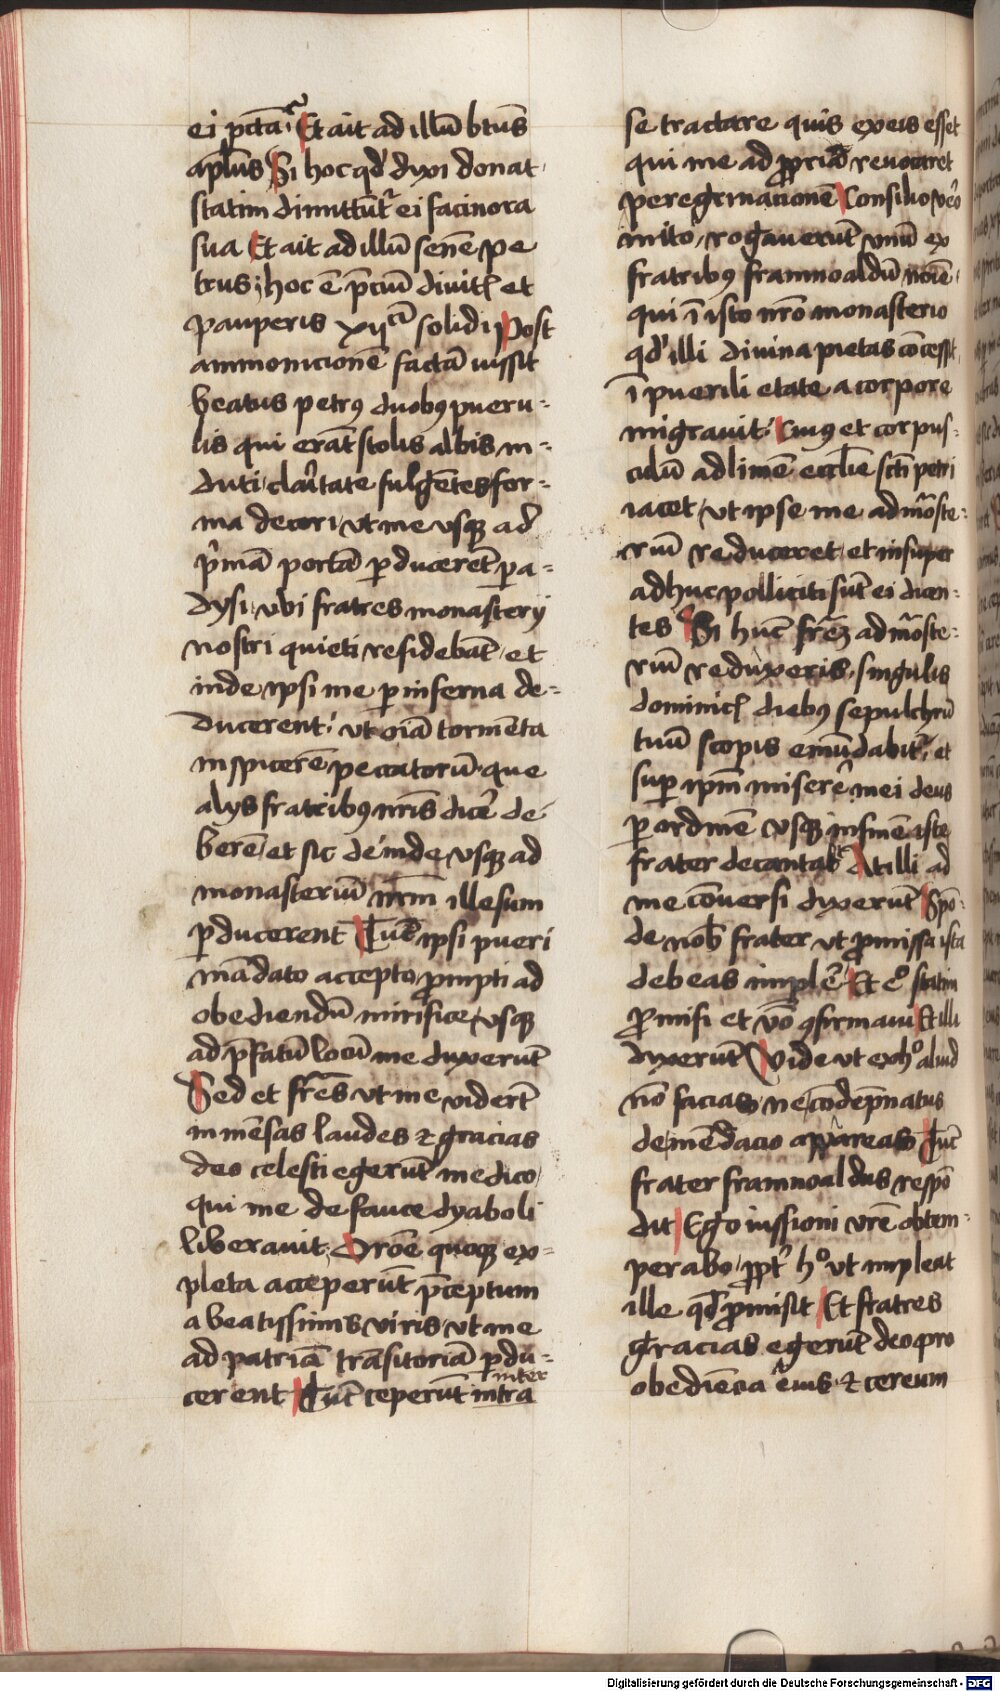 ei pctāꝛ Et ait ad illū btūs
aplūs Si hoc qđ dyxi donat
statim dimittūtꝛ ei facinora
sua Et ait ad illū senē pe
trus hoc ē p̄ciū divitꝭ et
pauperis xij solidi Post
ammonicionē factā iussit
beatus petrꝰ duobꝰ pueru-
lis qui erāt stolis albis in-
duti claritate fulgētes for-
ma decori vt me vsqꝫ ad
p'mā portā ꝑducerēt pa-
dysi vbi fratres monasterij
nostri quieti residebāt et
inde ipsi me ꝑ inferna de-
ducerent vt oīa tormēta
inspicerē peccatorū que
alys fratribꝰ nrīs dicē de-
berē et sic deinde vsqꝫ ad
monasteriū nrm̄ illesum
ꝑducerent Tūc ipsi pueri
mādato accepto ꝓmpti ad
obediendū mirifice vsqꝫ
ad p̄fatū locū me duxerūt
Sed et frēs vt me viderēt
inmēsas laudes ⁊ gracias
deo celesti egerūt medico
qui me de fauce dyaboli
liberauit Oroē quoqꝫ ex-
pleta acceperūt p̄ceptum
a beatissimis viris vt me
ad patriā trāsitoriā ꝑdu-
cerent Tūc ceperūt intra
inter
se tractare quis ex eis esset
qui me ad ꝓpriā reuocaret
peregrinacionē Consilio vēo
inito rogauerūt vnū ex
fratribꝰ framnoaldū noīe
qui ī isto nrō monasterio
qđ illi divina pietas cōcessit
ī puerili etate a corpore
migrauit Cuiꝰ et corpus-
culū ad limē ecclīe sctī petri
iacet vt ipse me ad mōste-
riū reduceret et insuper
adhuc polliciti sūt ei dicen-
tes Si hūc frēꝫ ad mōste-
riū reduxeris singulis
dominicꝭ diebꝰ sepulchrū
tuū scopis emūdabitꝛ et
suꝑ ipm̄ miserē mei deus
ꝑ ordinē vsqꝫ in finē iste
frater decantabt At illi ad
me cōuersi dyxerūt Spō-
de nob̄ frater vt ꝓmissa ista
debeas implē Et eᵒ statim
ꝓmisi et vō ꝯfirmaui Et illi
dyxerūt Vide vt ex hᵒ aliud
nō facias ne cōdēpnatus
de mēdacio appareas Tūc
frater framnoaldus respō
dit Ego iussioni vrē obtem-
perabo ꝓpt' hᵒ vt impleat
ille qđ ꝓmisit Et fratres
gracias egerūt deo pro
obediēcia eius ⁊ cereum
Digitalisierung gefördert durch die Deutsche Forschungsgemeinschaft - DFG